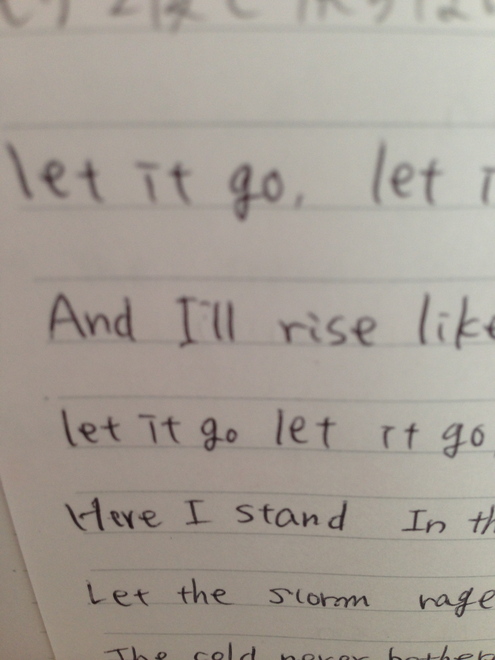 let it go, let
And I'll rise like
let it go let it go
Here I stand In th
Let the storm rage
The cold never bother